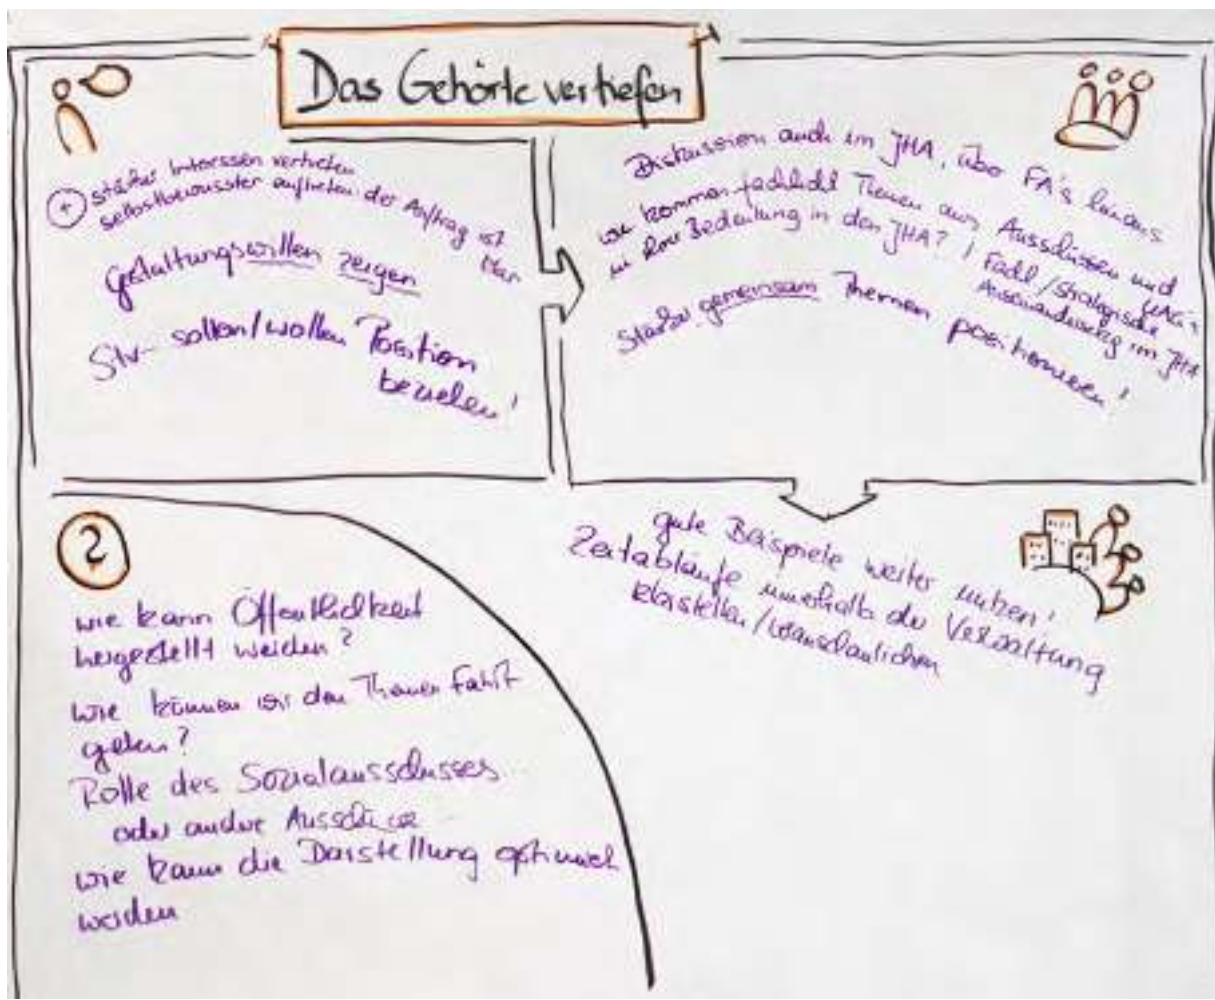 Das Gehörte vertiefen
+ stärker Interessen vertreten
selbstbewusster auftreten: der Auftrag ist
klar
Gestaltungswillen zeigen
Stv- sollen/wollen Position
beziehen!
Diskussion auch im JHA, über FA's hinaus
wie kommen fachlich Themen aus Ausschüssen und
UAG's
in ihrer Bedeutung in den JHA? / Fachl/strategische
Auseinandersetzg im JHA
Stärker gemeinsam Themen positionieren!
gute Beispiele weiter nutzen!
Zeitabläufe innerhalb der Verwaltung
klarstellen/veranschaulichen
?
wie kann Öffentlichkeit
hergestellt werden?
wie können wir den Themen Fahrt
geben?
Rolle des Sozialausschusses
oder andere Ausschüsse
wie kann die Darstellung optimiert
werden